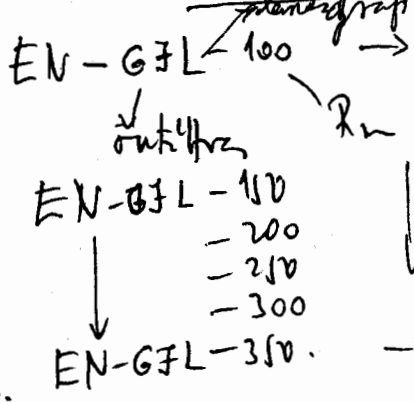 EN - GJL - 100 →
Rm
EN-GJL - 150
- 200
- 250
- 300
EN-GJL - 350.